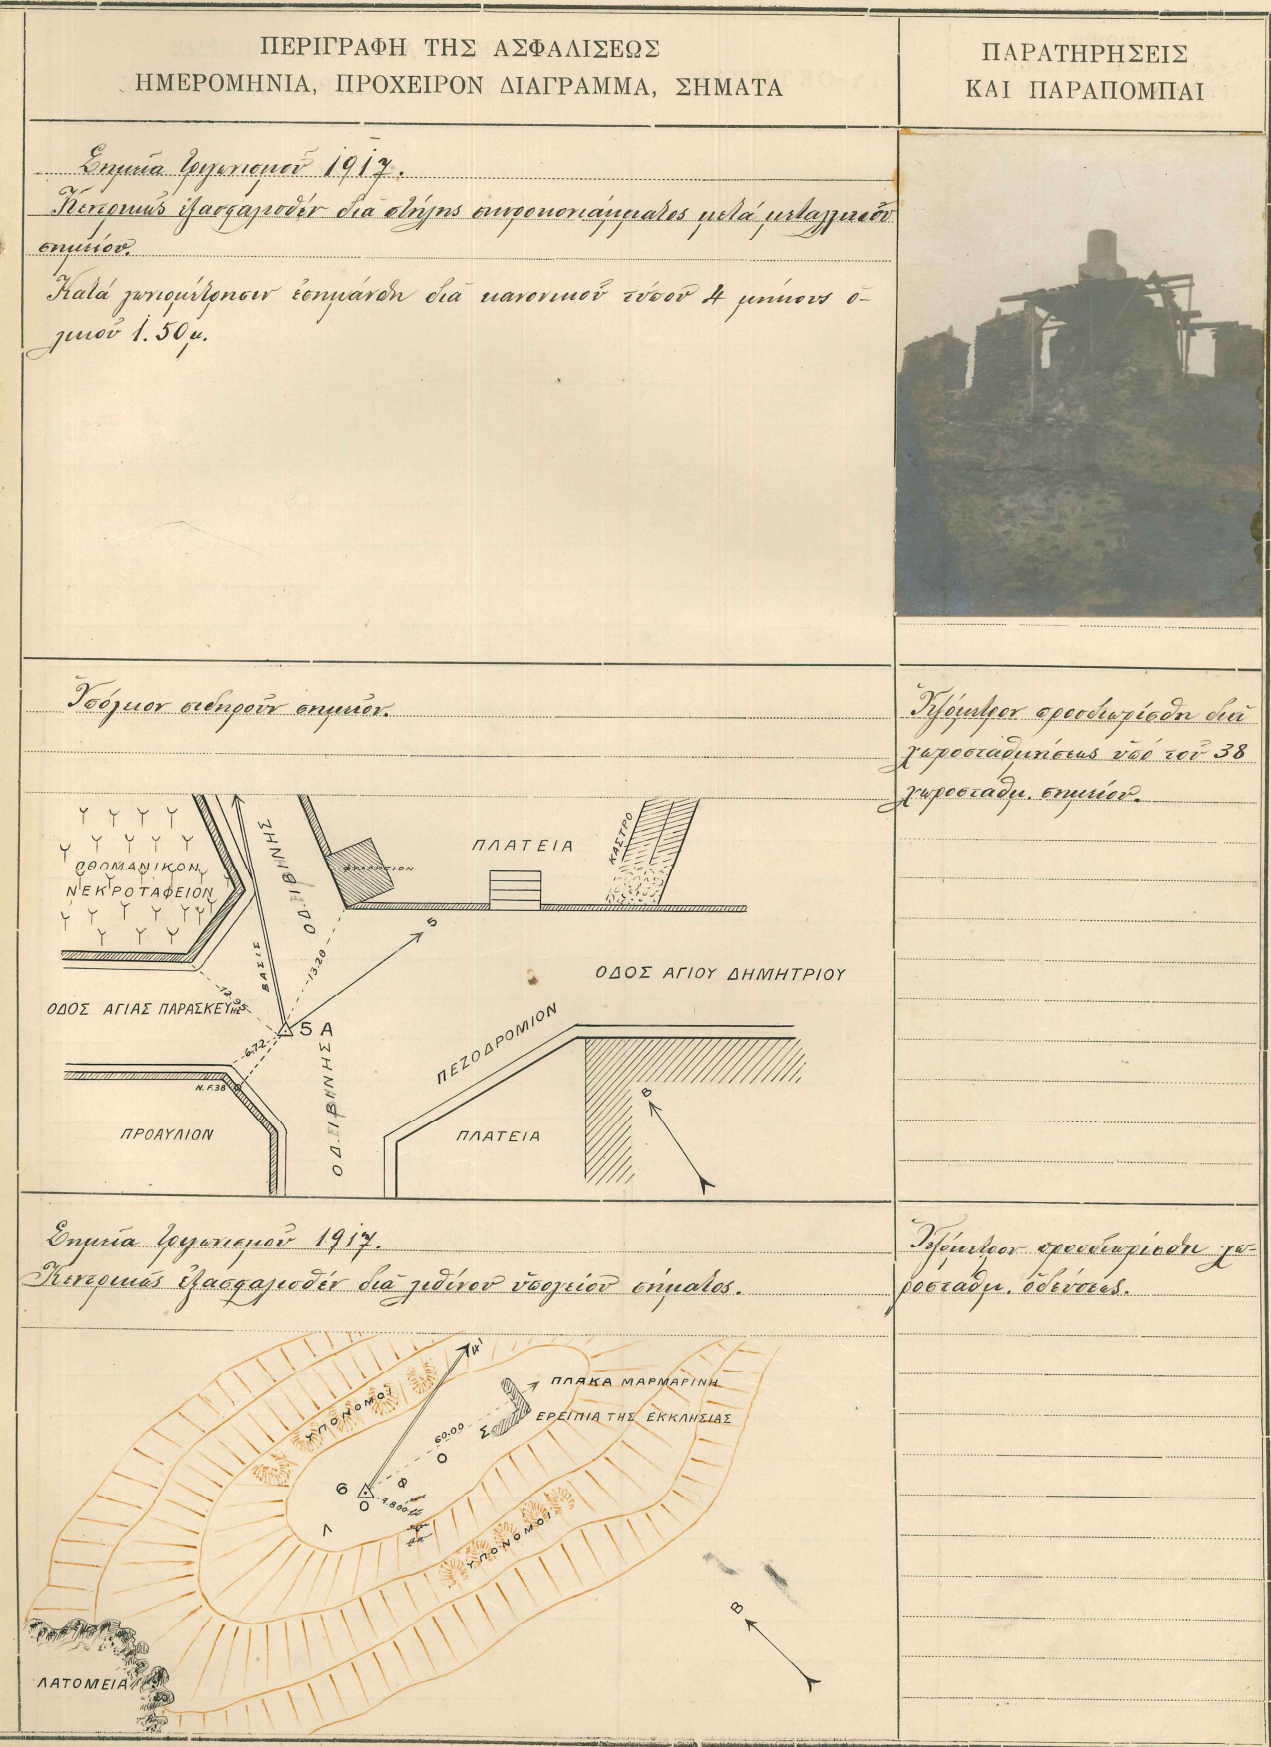 ΠΕΡΙΓΡΑΦΗ ΤΗΣ ΑΣΦΑΛΙΣΕΩΣ
ΗΜΕΡΟΜΗΝΙΑ, ΠΡΟΧΕΙΡΟΝ ΔΙΑΓΡΑΜΜΑ, ΣΗΜΑΤΑ
ΠΑΡΑΤΗΡΗΣΕΙΣ
ΚΑΙ ΠΑΡΑΠΟΜΠΑΙ
Σημεῖα τριγωνισμοῦ 1917.
Κεντρικῶς ἐξασφαλισθέν διά στήλης σκυροκονιάματος μετά μεταλλικοῦ
σημείου.
Κατά γωνιομέτρησιν ἐσημάνθη διά κανονικοῦ τύπου 4 μήκους ὁ-
λικοῦ 1.50μ.
Ὑπόγειον σιδηροῦν σημεῖον.
Ὑψόμετρον προσδιωρίσθη διά
χωροσταθμήσεως ὑπό τοῦ 38
χωροσταθμ. σημείου.
ΟΘΩΜΑΝΙΚΟΝ
ΝΕΚΡΟΤΑΦΕΙΟΝ
ΟΔ. ΕΙΒΗΝΗΣ
ΒΑΣΙΣ
ΠΛΑΤΕΙΑ
ΚΑΣΤΡΟ
5
13.20
12.95
ΟΔΟΣ ΑΓΙΟΥ ΔΗΜΗΤΡΙΟΥ
ΟΔΟΣ ΑΓΙΑΣ ΠΑΡΑΣΚΕΥΗΣ
5 Α
6.72
N.F.38
ΠΕΖΟΔΡΟΜΙΟΝ
ΠΡΟΑΥΛΙΟΝ
ΟΔ. ΕΙΒΗΝΗΣ
ΠΛΑΤΕΙΑ
Β
Σημεῖα τριγωνισμοῦ 1917.
Κεντρικῶς ἐξασφαλισθέν διά λιθίνου ὑπογείου σήματος.
Ὑψόμετρον προσδιωρίσθη χω-
ροσταθμ. ὁδεύσεως.
ΠΛΑΚΑ ΜΑΡΜΑΡΙΝΗ
ΕΡΕΙΠΙΑ ΤΗΣ ΕΚΚΛΗΣΙΑΣ
ΥΠΟΝΟΜΟΙ
60.00
6
ΛΟΦΟΣ
ΥΠΟΝΟΜΟΙ
Β
ΛΑΤΟΜΕΙΑ